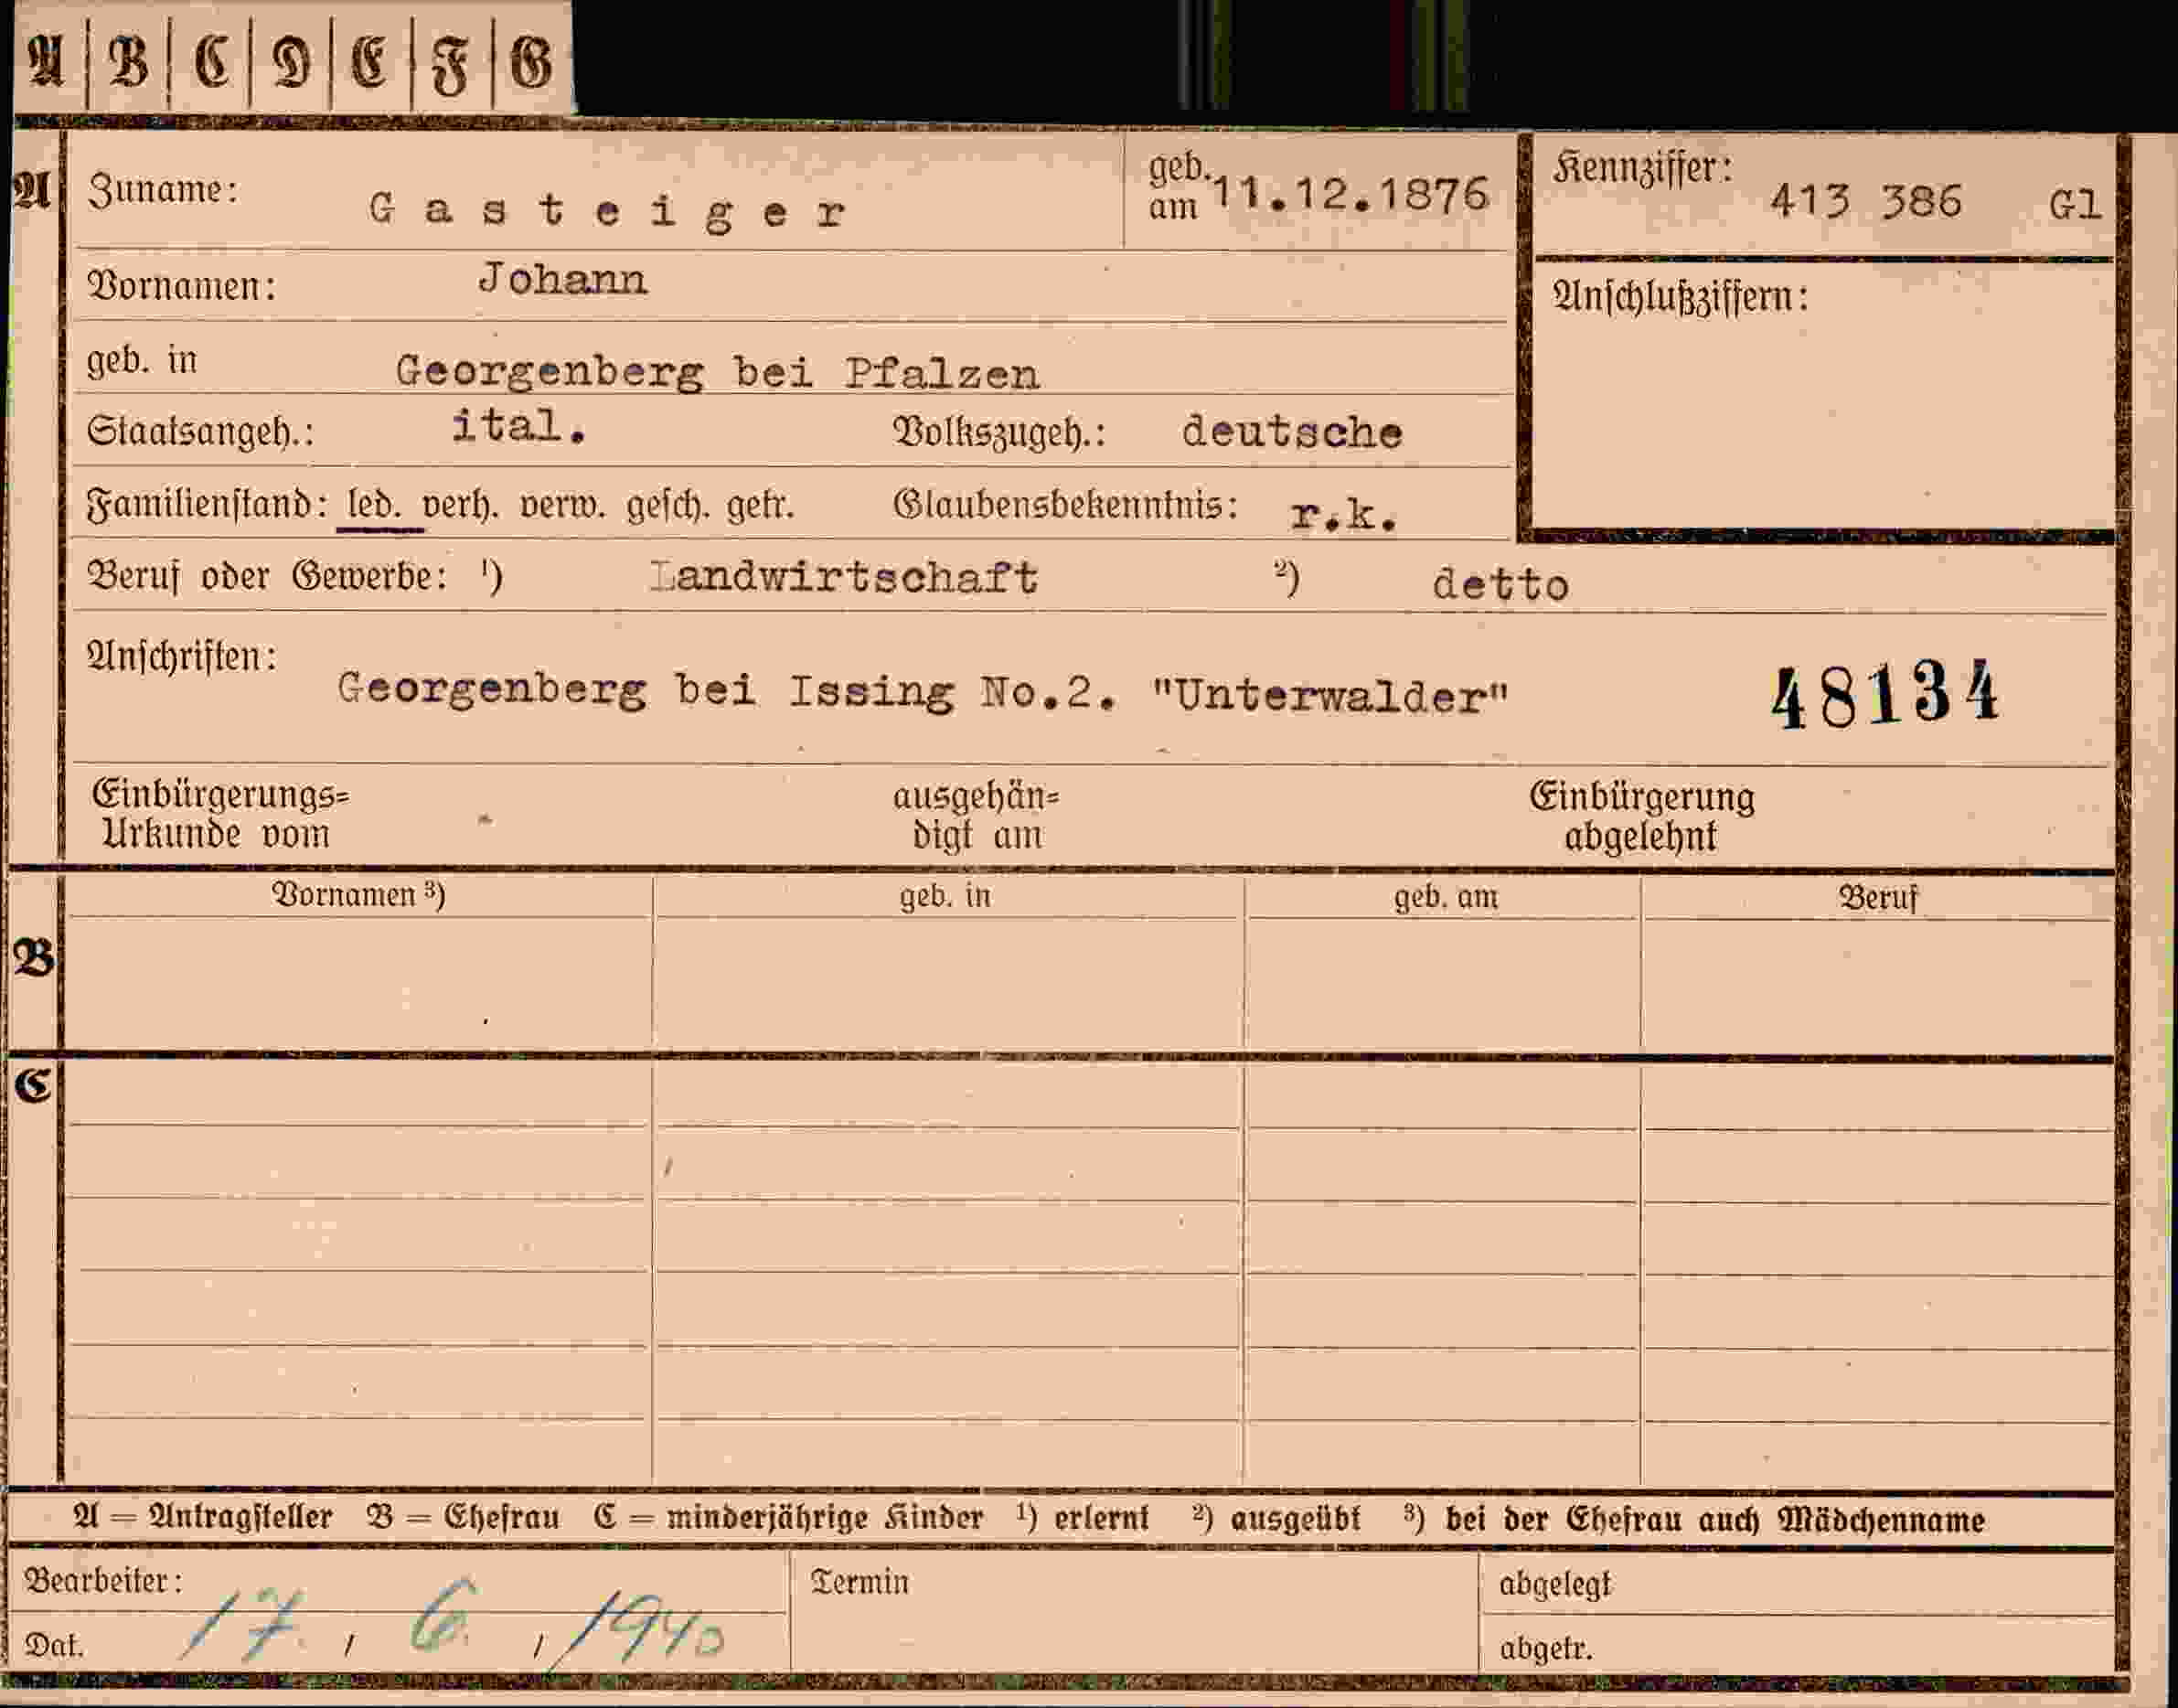 A B C D E F G
A Zuname: Gasteiger geb. am 11.12.1876 Kennziffer: 413 386 Gl
Vornamen: Johann
Anschlußziffern:
geb. in Georgenberg bei Pfalzen
Staatsangeh.: ital. Volkszugeh.: deutsche
Familienstand: led. verh. verw. gesch. getr. Glaubensbekenntnis: r.k.
Beruf oder Gewerbe: ¹) Landwirtschaft ²) detto
Anschriften:
Georgenberg bei Issing No.2. "Unterwalder" 48134
Einbürgerungs= ausgehän= Einbürgerung
Urkunde vom digt am abgelehnt
Vornamen ³) geb. in geb. am Beruf
B
C
A = Antragsteller B = Ehefrau C = minderjährige Kinder ¹) erlernt ²) ausgeübt ³) bei der Ehefrau auch Mädchenname
Bearbeiter: Termin abgelegt
Dat. 17. / 6. / 1940 abgetr.